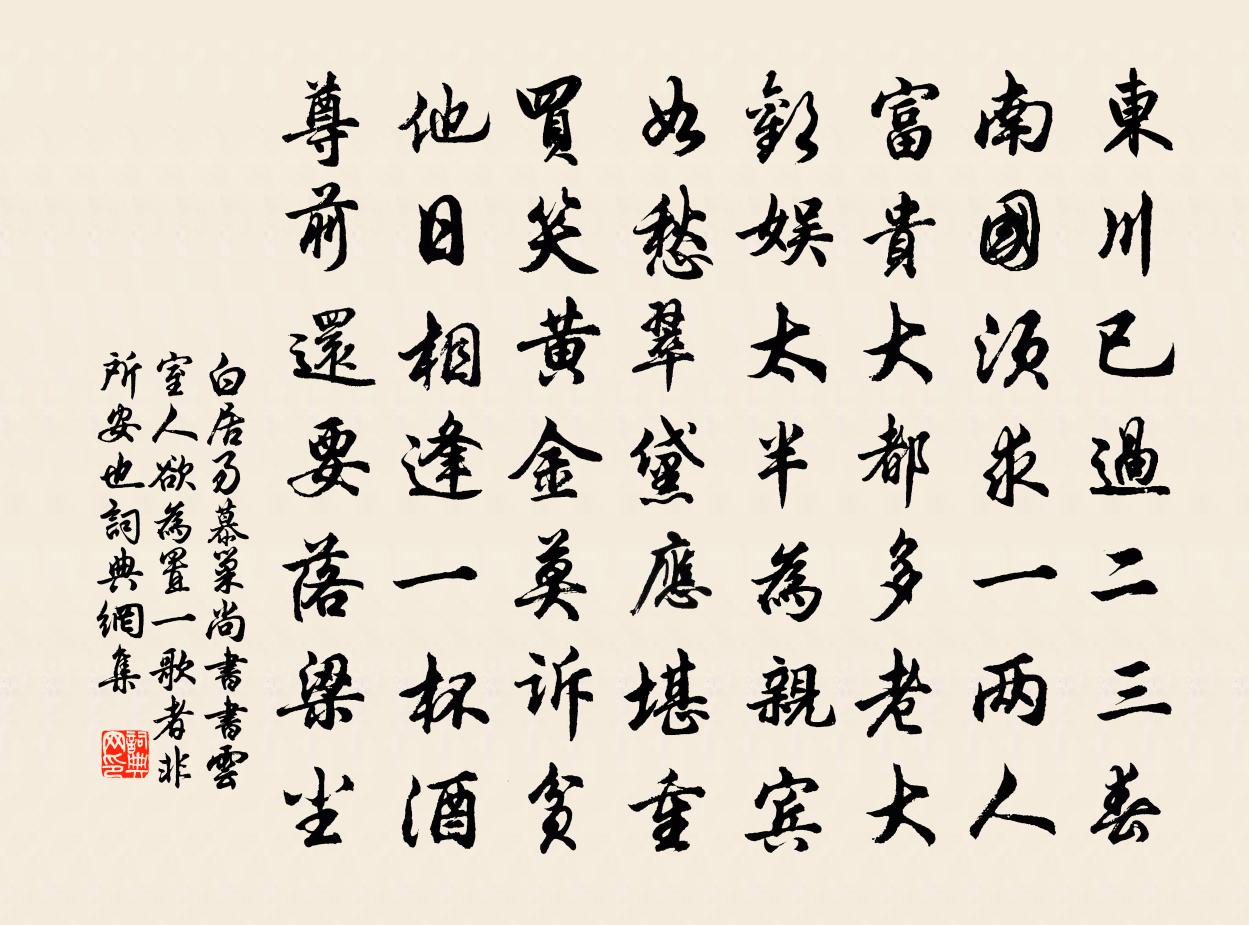 東川已過二三春
南國須求一两人
富貴大都多老大
歡娱太半為親賓
如愁翠黛應堪重
買笑黄金莫訴貧
他日相逢一杯酒
尊前還要落梁尘
白居易慕巢尚書書雲
室人欲為置一歌者非
所安也詞典網集
詞典
网印